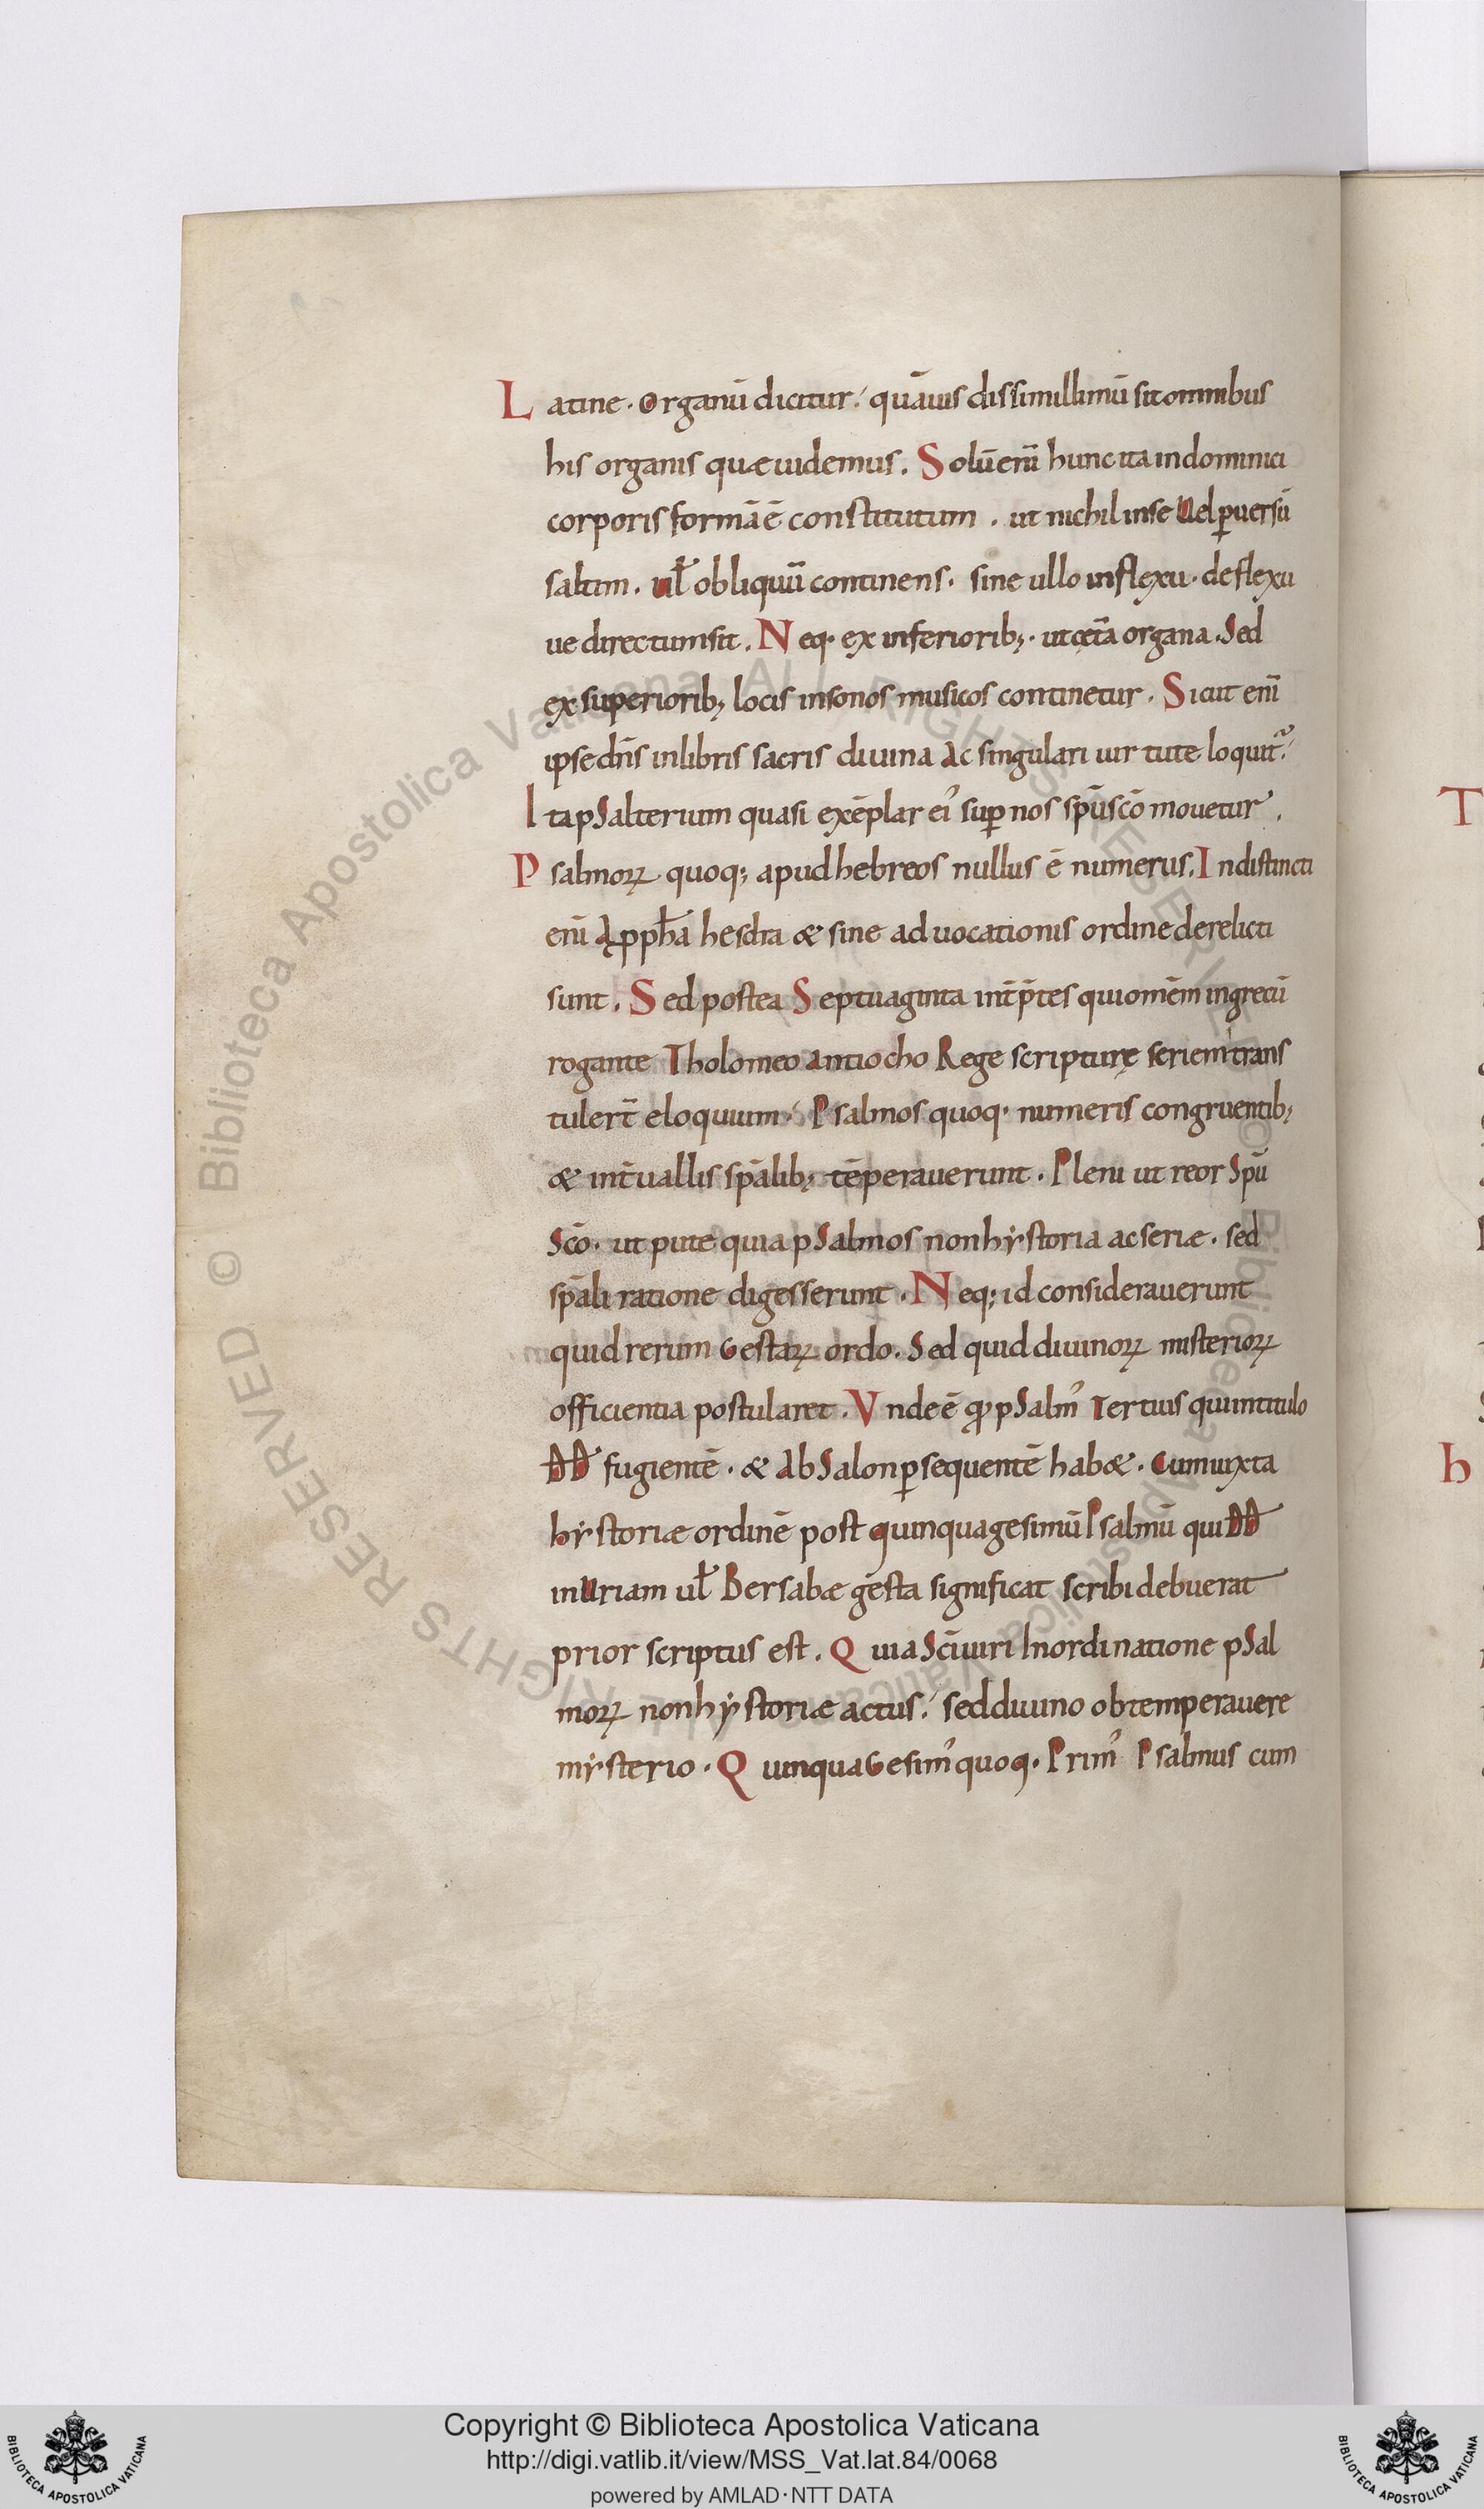 Latine · Organū dicitur ·' quāuis dissimillimū sit omnibus
his organis quæ uidemus . Solū enī hunc ita in dominici
corporis formā ē constitutum . ut nichil in se Uel ꝑuersū
saltim . ul̃ obliquū continens . sine ullo inflexu · deflexu
ue directum sit . Neq· ex inferiorib; · ut cet̄a organa . Sed
ex superiorib; locis in sonos musicos continetur . Sicut enī
ipse dn̄s in libris sacris diuina Ac singulari uirtute loquit᷑ ·'
Ita pSalterium quasi exēplar ei' suꝑ nos sp̄u sc̄o mouetur .
Psalmoꝝ quoq; apud hebreos nullus ē numerus . Indistincti
enī A pph̄a hesdra & sine aduocationis ordine derelicti
sunt . Sed postea Septuaginta int̄p̄tes qui om̄em in grecū
rogante Tholomeo Antiocho Rege scripturę seriem trans
tulert̄ eloquium ·' Psalmos quoq· numeris congruentib;
& int̄uallis sp̄alib; tēperauerunt . Pleni ut reor Sp̄u
Sc̄o · ut pute quia pSalmos non hẏstoria ac seriæ . sed
sp̄ali ratione digesserunt . Neq; id considerauerunt
quid rerum Gestaꝝ ordo . Sed quid diuinoꝝ misterioꝝ
officientia postularet . Vnde ē qd' pSalm' Tertius qui intitulo
DD fugientē · & AbSalon ꝑsequentē hab& · Cum iuxta
hẏstoriæ ordinē post quinquagesimū Psalmū qui DD
in Uriam ul̃ Bersabæ gesta significat scribi debuerat
prior scriptus est . Quia Sc̄i uiri In ordinatione pSal
moꝝ non hẏstoriæ actus ·' sed diuino obtemperauere
mẏsterio · QuinquaGesim' quoq· Prim' Psalmus cum
T
h
Copyright © Biblioteca Apostolica Vaticana
http://digi.vatlib.it/view/MSS_Vat.lat.84/0068
powered by AMLAD·NTT DATA
BIBLIOTECA APOSTOLICA VATICANA
BIBLIOTECA APOSTOLICA VATICANA
© Biblioteca Apostolica Vaticana ALL RIGHTS RESERVED
© Biblioteca Apostolica Vaticana ALL RIGHTS RESERVED